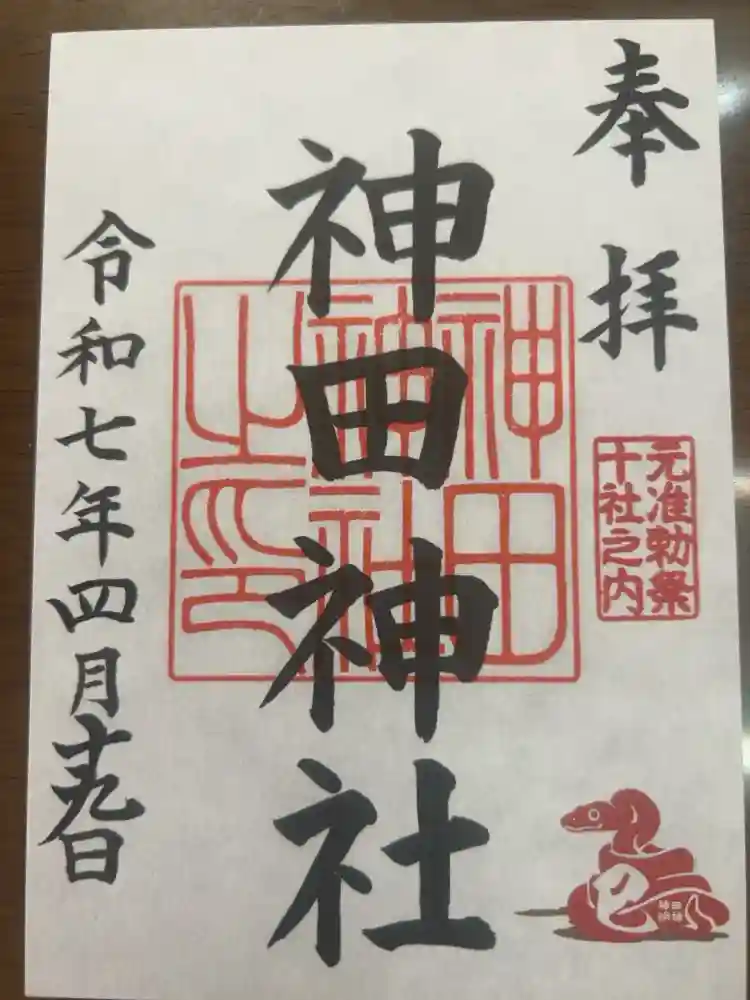 奉拝
元准勅祭
十社之内
神田神社
神田
神社
之印
令和七年四月十九日
神田
明神